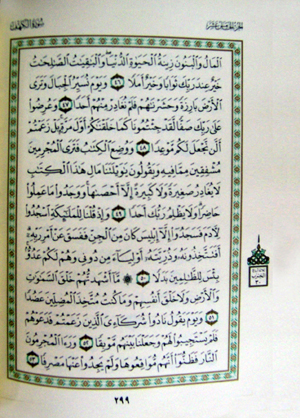 سُورَةُ الكَهْفِ
الْمَالُ وَالْبَنُونَ زِينَةُ الْحَيَوٰةِ الدُّنْيَا ۖ وَالْبَٰقِيَٰتُ الصَّٰلِحَٰتُ
خَيْرٌ عِندَ رَبِّكَ ثَوَابًا وَخَيْرٌ أَمَلًا ٤٦ وَيَوْمَ نُسَيِّرُ الْجِبَالَ وَتَرَى
الْأَرْضَ بَارِزَةً وَحَشَرْنَٰهُمْ فَلَمْ نُغَادِرْ مِنْهُمْ أَحَدًا ٤٧ وَعُرِضُوا
عَلَىٰ رَبِّكَ صَفًّا لَّقَدْ جِئْتُمُونَا كَمَا خَلَقْنَٰكُمْ أَوَّلَ مَرَّةٍ ۚ بَلْ زَعَمْتُمْ
أَلَّن نَّجْعَلَ لَكُم مَّوْعِدًا ٤٨ وَوُضِعَ الْكِتَٰبُ فَتَرَى الْمُجْرِمِينَ
مُشْفِقِينَ مِمَّا فِيهِ وَيَقُولُونَ يَٰوَيْلَتَنَا مَالِ هَٰذَا الْكِتَٰبِ
لَا يُغَادِرُ صَغِيرَةً وَلَا كَبِيرَةً إِلَّا أَحْصَىٰهَا ۚ وَوَجَدُوا مَا عَمِلُوا
حَاضِرًا ۗ وَلَا يَظْلِمُ رَبُّكَ أَحَدًا ٤٩ وَإِذْ قُلْنَا لِلْمَلَٰٓئِكَةِ اسْجُدُوا
لِءَادَمَ فَسَجَدُوا إِلَّا إِبْلِيسَ كَانَ مِنَ الْجِنِّ فَفَسَقَ عَنْ أَمْرِ رَبِّهِ ۗ
أَفَتَتَّخِذُونَهُ وَذُرِّيَّتَهُ أَوْلِيَاءَ مِن دُونِي وَهُمْ لَكُمْ عَدُوٌّ ۚ
بِئْسَ لِلظَّٰلِمِينَ بَدَلًا ٥٠ ۞ مَّا أَشْهَدتُّهُمْ خَلْقَ السَّمَٰوَٰتِ
وَالْأَرْضِ وَلَا خَلْقَ أَنفُسِهِمْ وَمَا كُنتُ مُتَّخِذَ الْمُضِلِّينَ عَضُدًا
٥١ وَيَوْمَ يَقُولُ نَادُوا شُرَكَاءِيَ الَّذِينَ زَعَمْتُمْ فَدَعَوْهُمْ
فَلَمْ يَسْتَجِيبُوا لَهُمْ وَجَعَلْنَا بَيْنَهُم مَّوْبِقًا ٥٢ وَرَءَا الْمُجْرِمُونَ
النَّارَ فَظَنُّوا أَنَّهُم مُّوَاقِعُوهَا وَلَمْ يَجِدُوا عَنْهَا مَصْرِفًا ٥٣
٢٩٩